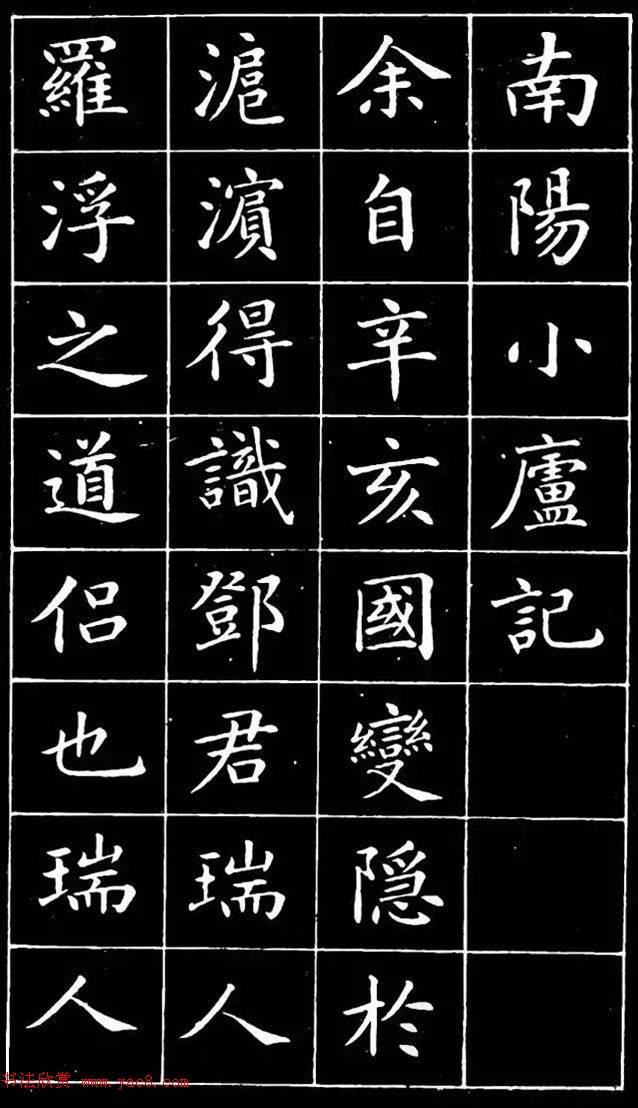 南陽小廬記
余自辛亥國變隱於
滬濵得識鄧君瑞人
羅浮之道侶也瑞人
书法欣赏 www.yac8.com